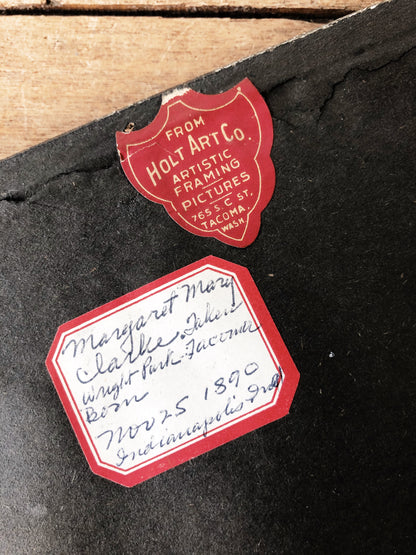 FROM
HOLT ART CO.
ARTISTIC
FRAMING
PICTURES
765 S. C ST.
TACOMA,
WASH.
Margaret Mary
Clarke. Taken
Wright Park. Tacoma
Born
Nov 25 1890
Indianapolis Ind